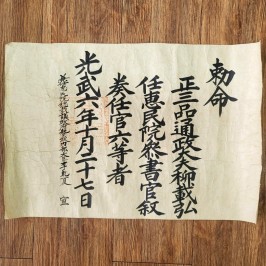 勅命
正三品通政大夫柳載弘
任惠民院參書官敘
奏任官六等者
光武六年十月二十七日
宣